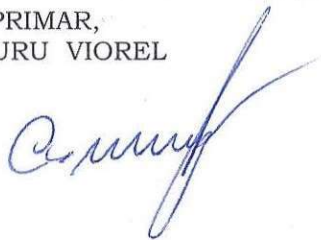 PRIMAR,
URU VIOREL